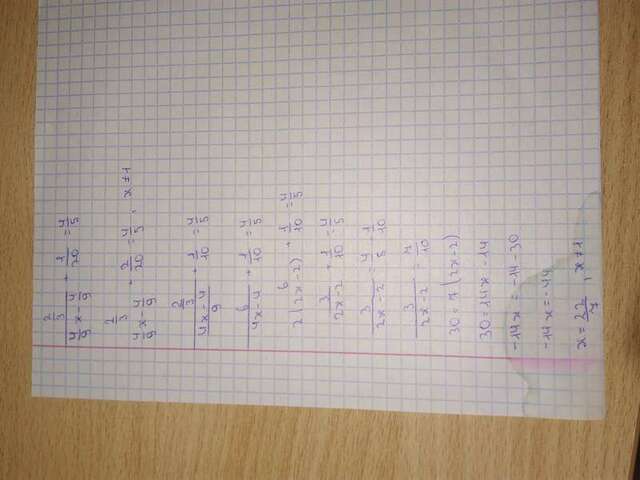 (2/3)/(4/9 x - 4/9) + 1/20 = 4/5
(2/3)/(4/9 x - 4/9) + 2/20 = 4/5, x ≠ 1
(2/3)/((4x - 4)/9) + 1/10 = 4/5
6/(4x - 4) + 1/10 = 4/5
6/(2(2x - 2)) + 1/10 = 4/5
3/(2x - 2) + 1/10 = 4/5
3/(2x - 2) = 4/5 - 1/10
3/(2x - 2) = 7/10
30 = 7(2x - 2)
30 = 14x - 14
-14x = -14 - 30
-14x = -44
x = 22/7, x ≠ 1